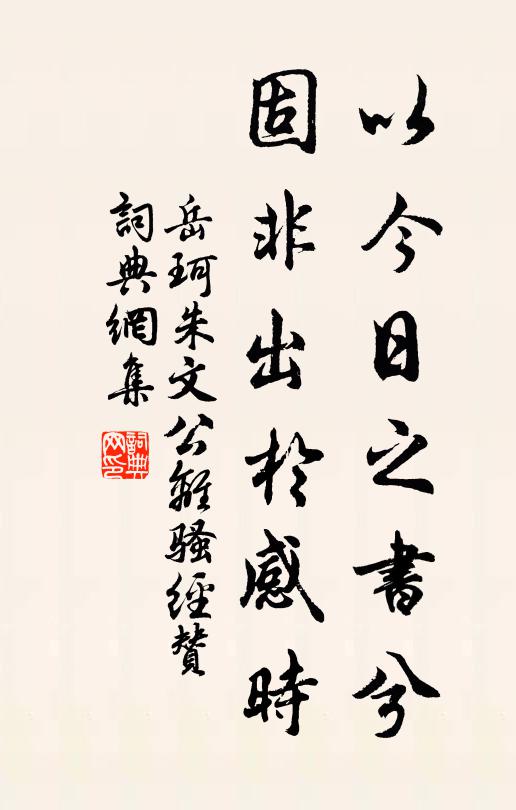 以今日之書兮
固非出於感時
岳珂朱文公離騷經贊
詞典網集
詞典网印